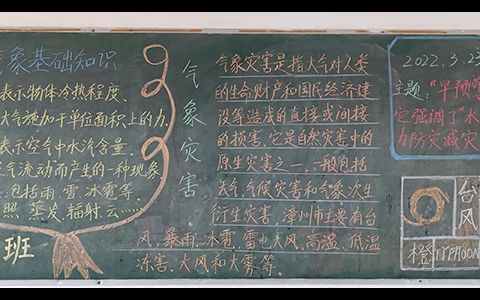 气象基础知识
表示物体冷热程度、
大气施加于单位面积上的力、
表示空气中水汽含量、
空气流动而产生的一种现象
包括雨、雪、冰雹等、
照、蒸发、辐射、云……
班
气象灾害
气象灾害是指大气对人类
的生命财产和国民经济建
设等造成的直接或间接
的损害。它是自然灾害中的
原生灾害之一。一般包括
大气、气候灾害和气象次生
衍生灾害。漳州市主要有台
风、暴雨、冰雹、雷电、大风、高温、低温
冻害、大风和大雾等。
2022.3.23
主题:"早预警
它强调了"水
力防灾减灾
台风
橙 TYPHOON